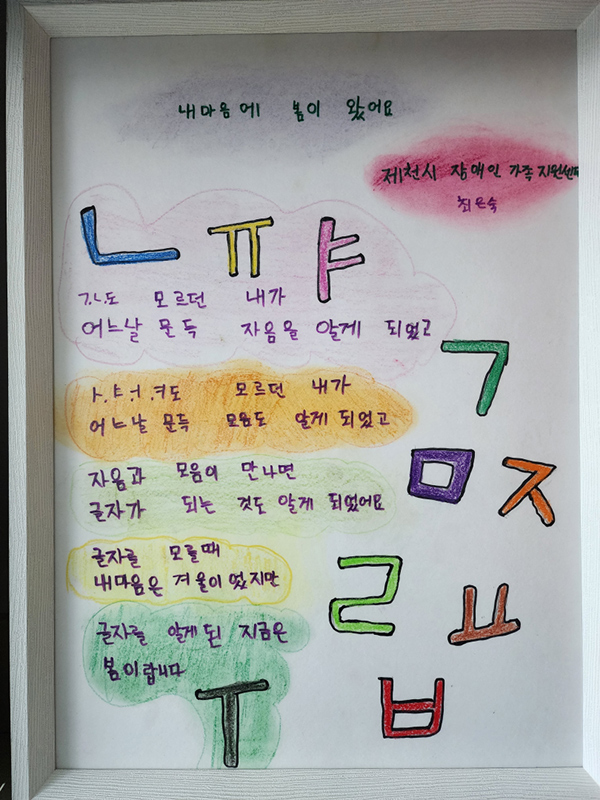 내마음에 봄이 왔어요
제천시 장애인 가족지원센터
최은숙
ㄴ ㅠ ㅑ
ㄱ.ㄴ도 모르던 내가
어느날 문득 자음을 알게 되었고
ㄱ
ㅏ.ㅑ.ㅓ.ㅕ도 모르던 내가
어느날 문득 모음도 알게 되었고
자음과 모음이 만나면
글자가 되는 것도 알게 되었어요
ㅁ ㅈ
글자를 모를때
내마음은 겨울이었지만
ㄹ ㅛ
글자를 알게 된 지금은
봄이랍니다
ㅜ ㅂ